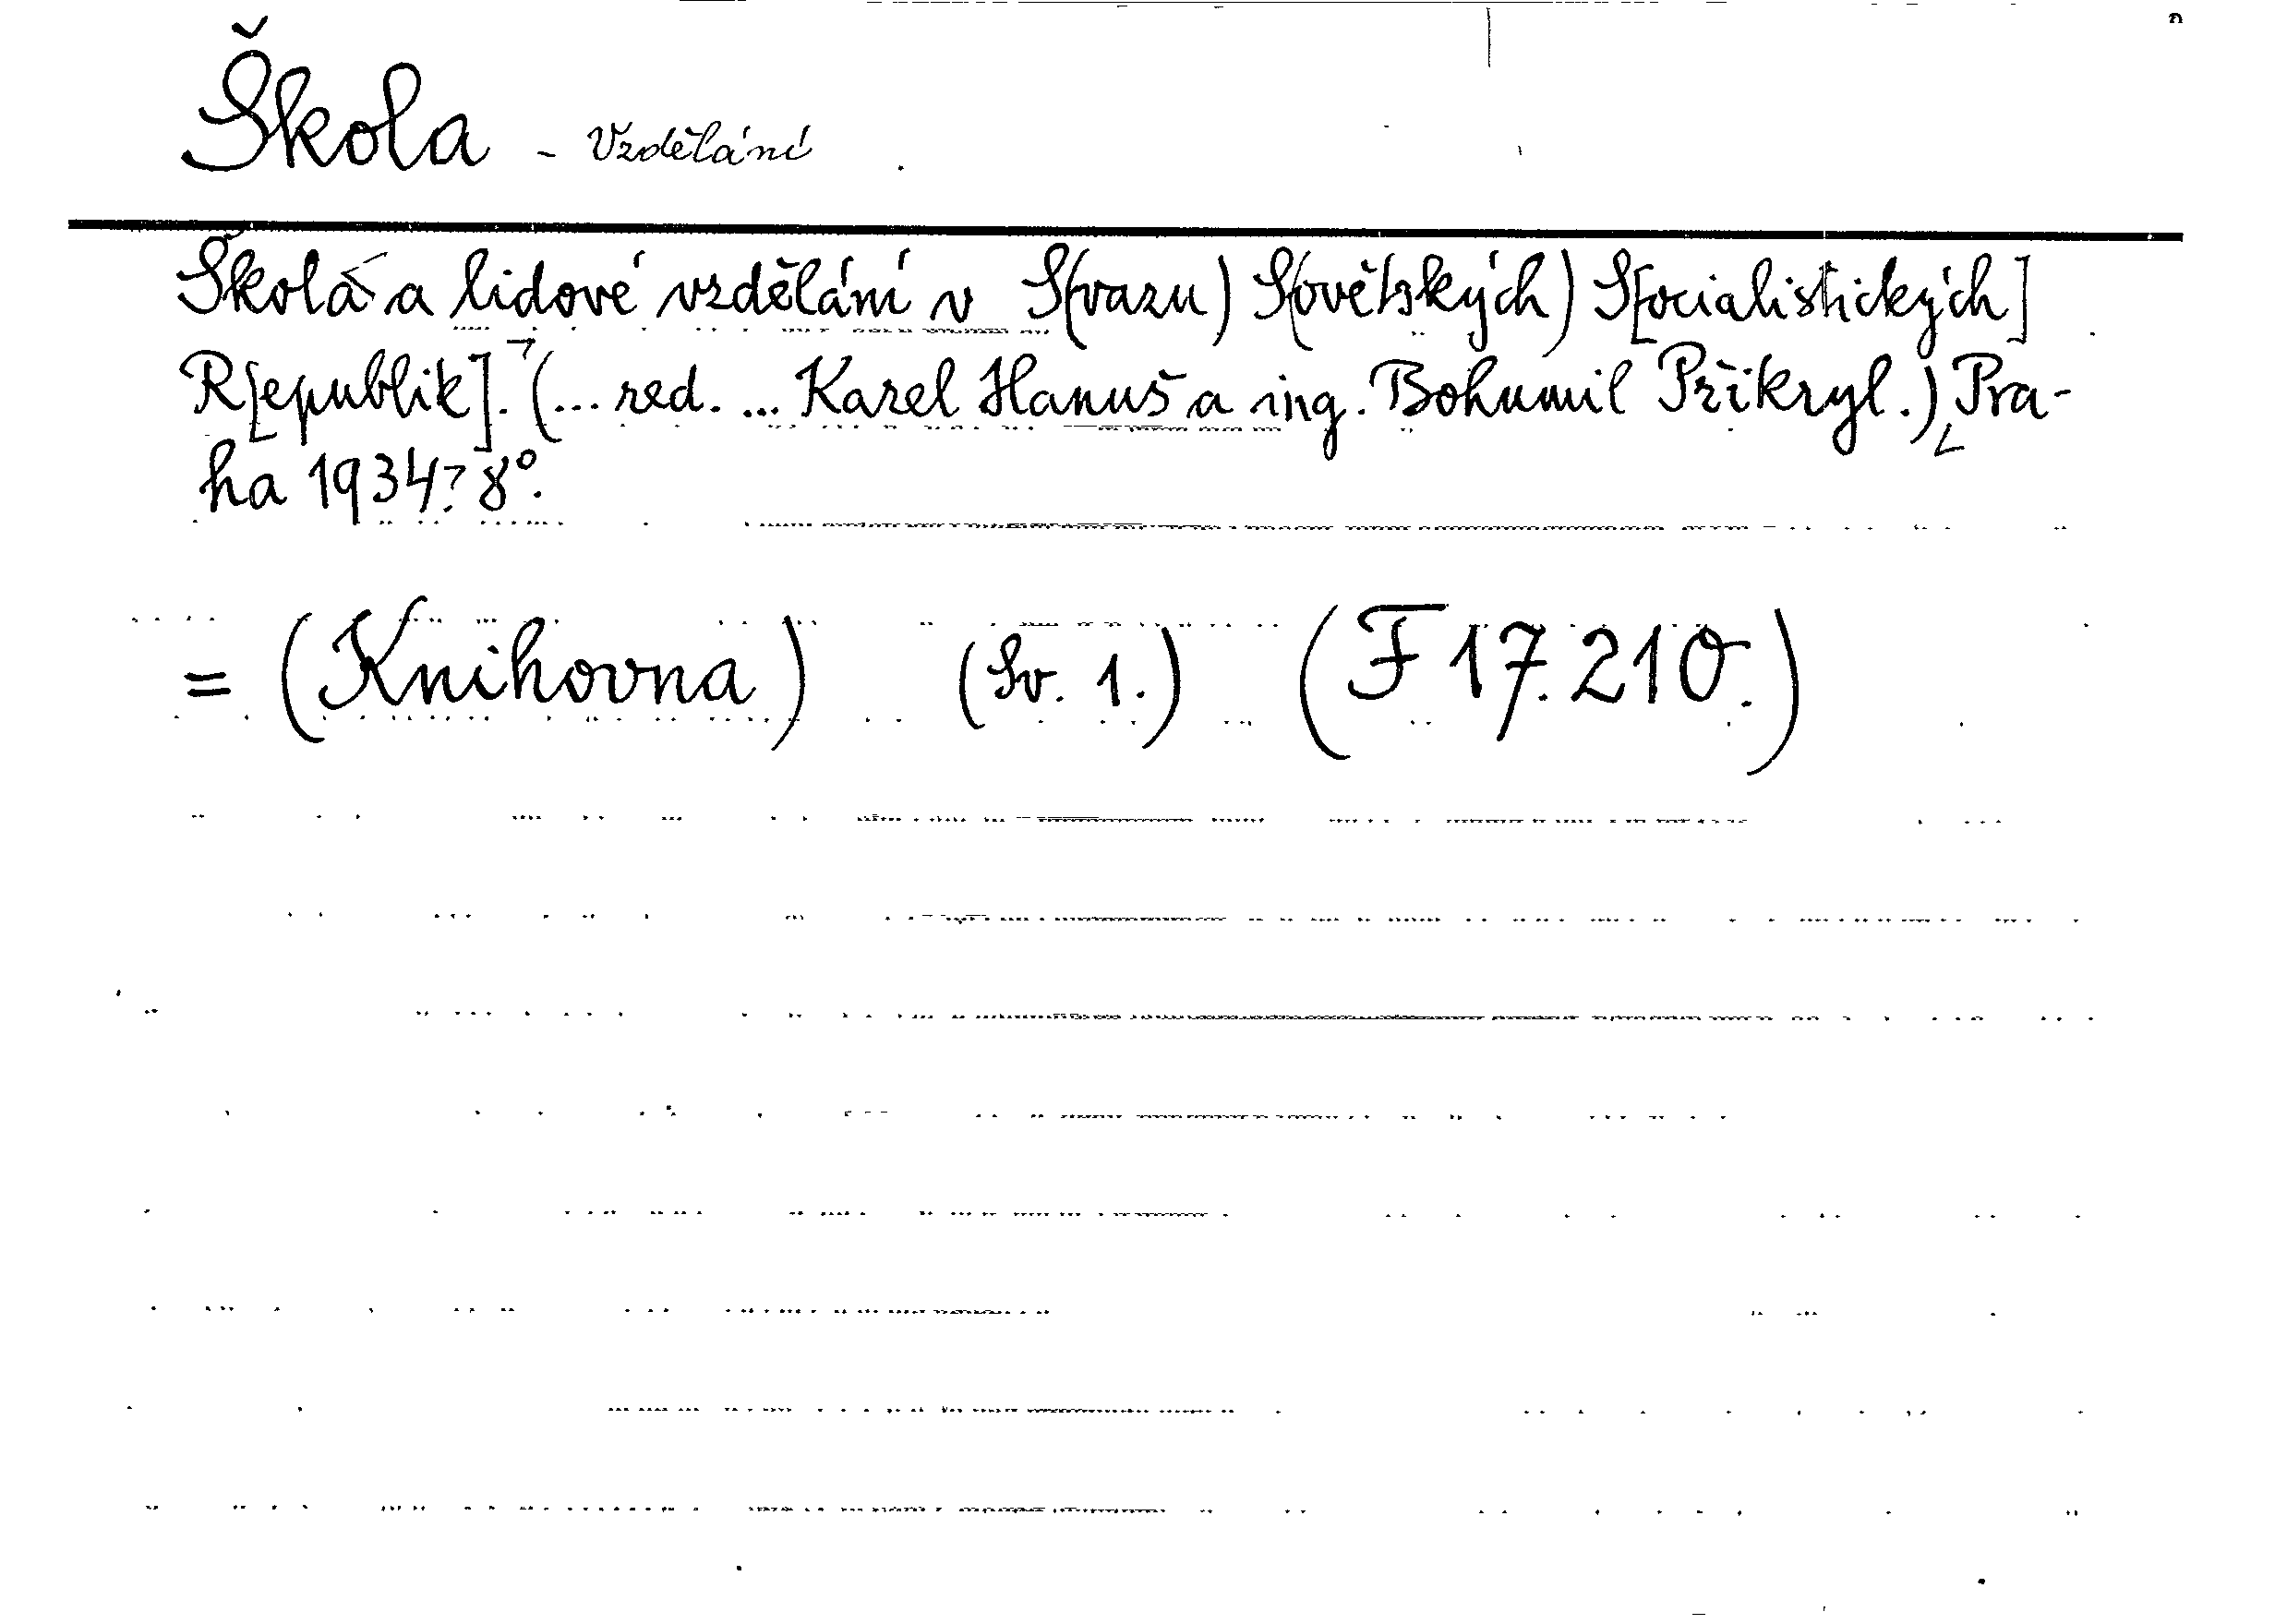 Škola - Vzdělání
Škola a lidové vzdělání v S(vazu) S(ovětských) S[ocialistických]
R[epublik]. (... red. ... Karel Hanuš a ing. Bohumil Přikryl.) Pra-
ha 1934? 8°.
= (Knihovna) (Sv. 1.) (F 17.210.)